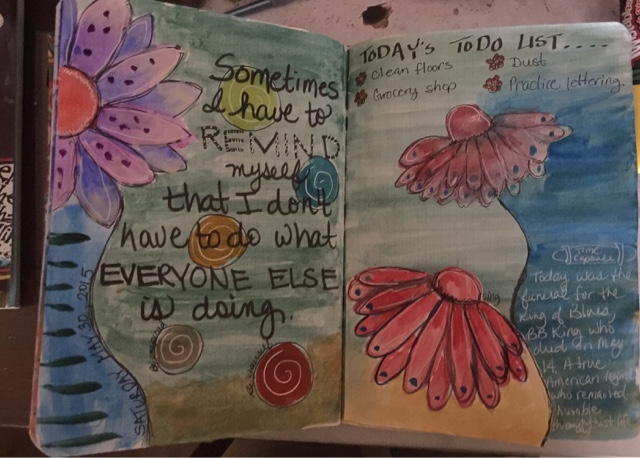 Sometimes
I have to
REMIND
myself
that I don't
have to do what
EVERYONE ELSE
is doing.
SATURDAY MAY 30, 2015
TODAY'S TO DO LIST....
Clean floors
Dust
Grocery shop
Practice lettering.
TIME CAPSULE
Today was the
funeral for the
King of Blues,
BB King who
died on May
14. A true
American
who remained
humble
throughout life